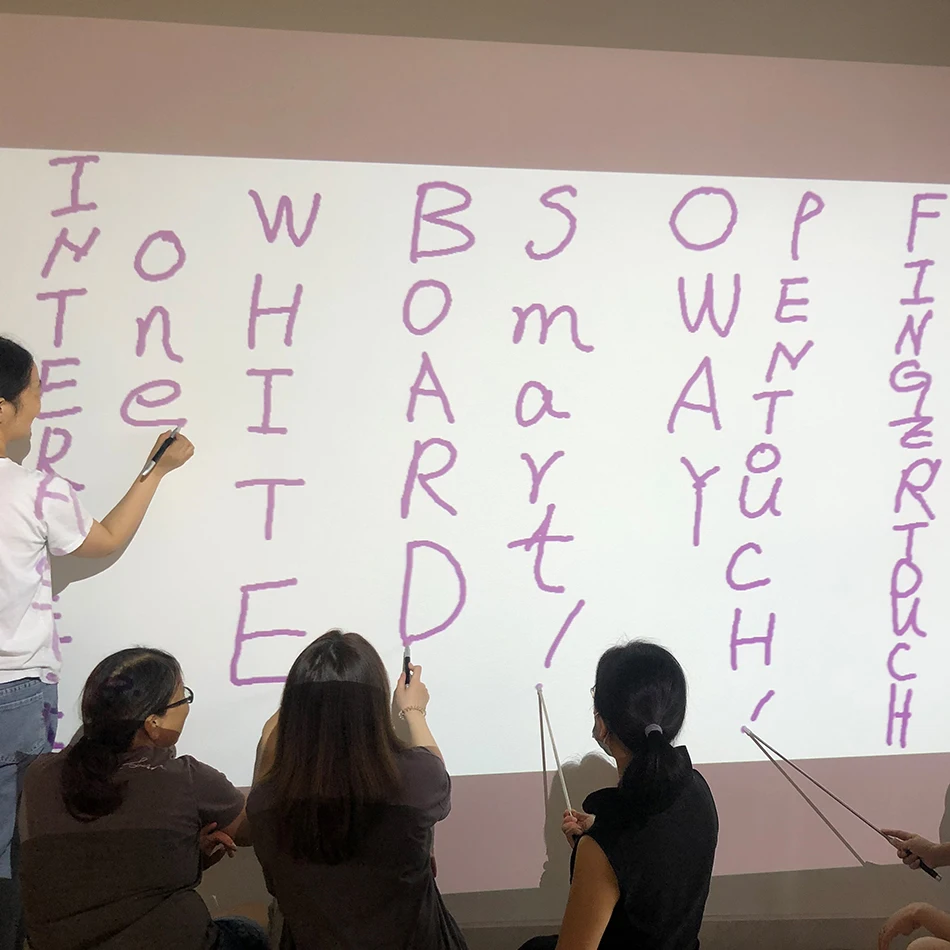 one
WHITE
BOARD
Smart,
OWAY
PENTOUCH,
FINGERTOUCH